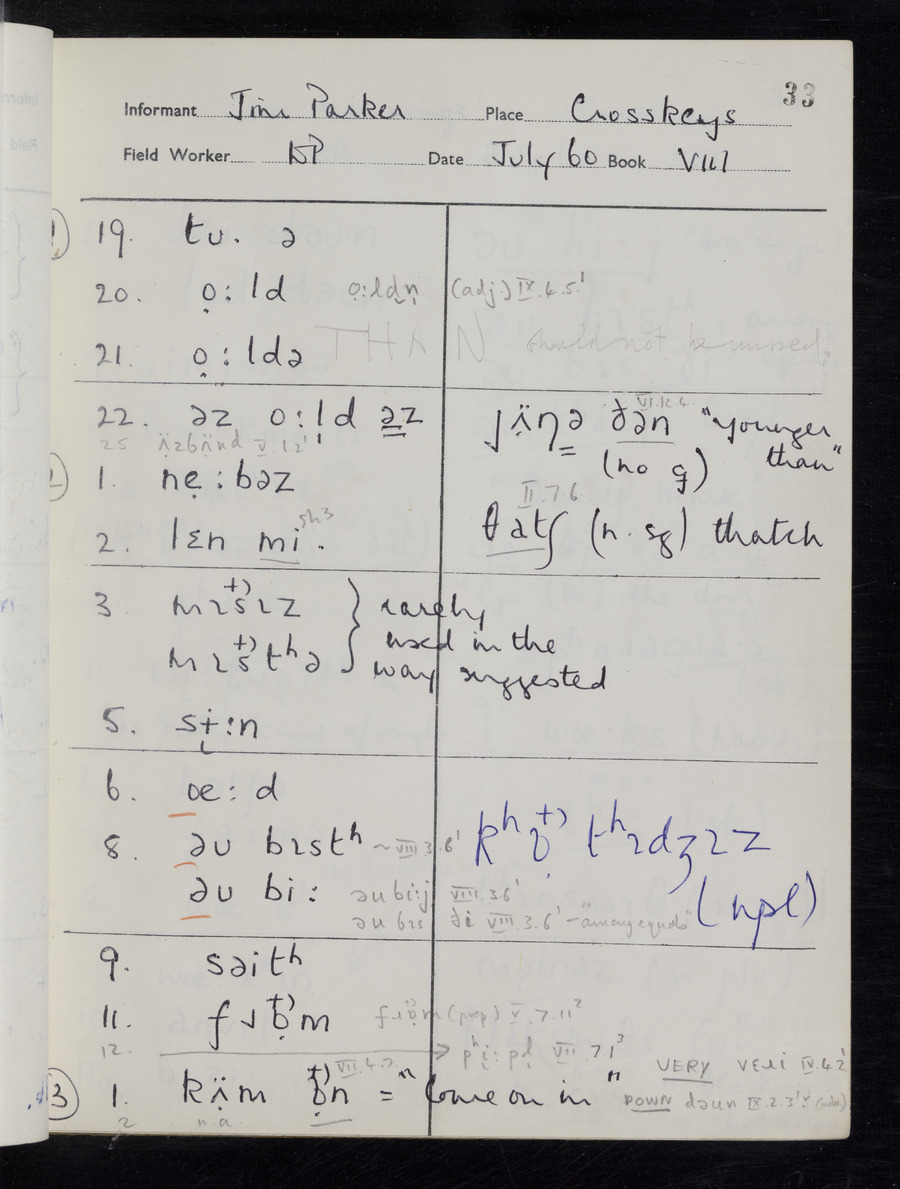 33
Informant Jim Parker Place Crosskeys
Field Worker DP Date July 60 Book VIII
1) 19. tu. ə
20. ọ: ld o:ldn̩ (adj.) IX.4.5'
21. ọ: ldə THAN should not be missed
22. əz o:ld əz
25 ïzbänd V.1.2'
jïŋə ðən VI.12.4 "younger than"
(no g)
2) 1. nẹ: bəz
2. lɛn mi. sh3
II.7.6
θatʃ (n. sg) thatch
rarely used in the way suggested
5. sɨ:n
6. œ: d
8. əu bɪstʰ ~ VIII.3.6'
əu bi: əu bi:j VIII.3.6'
əu bɪs ði VIII.3.6' - among equals
(n pl)
9. səitʰ
11. fɹɒm (prep) V.7.11²
12. pʰi:pl̩ VII.7.1³
VERY vɛɹi IV.4.2'
3) 1. käm ɒn VII.4.7 = "Come on in"
DOWN dəun IX.2.3'
2 n.a.